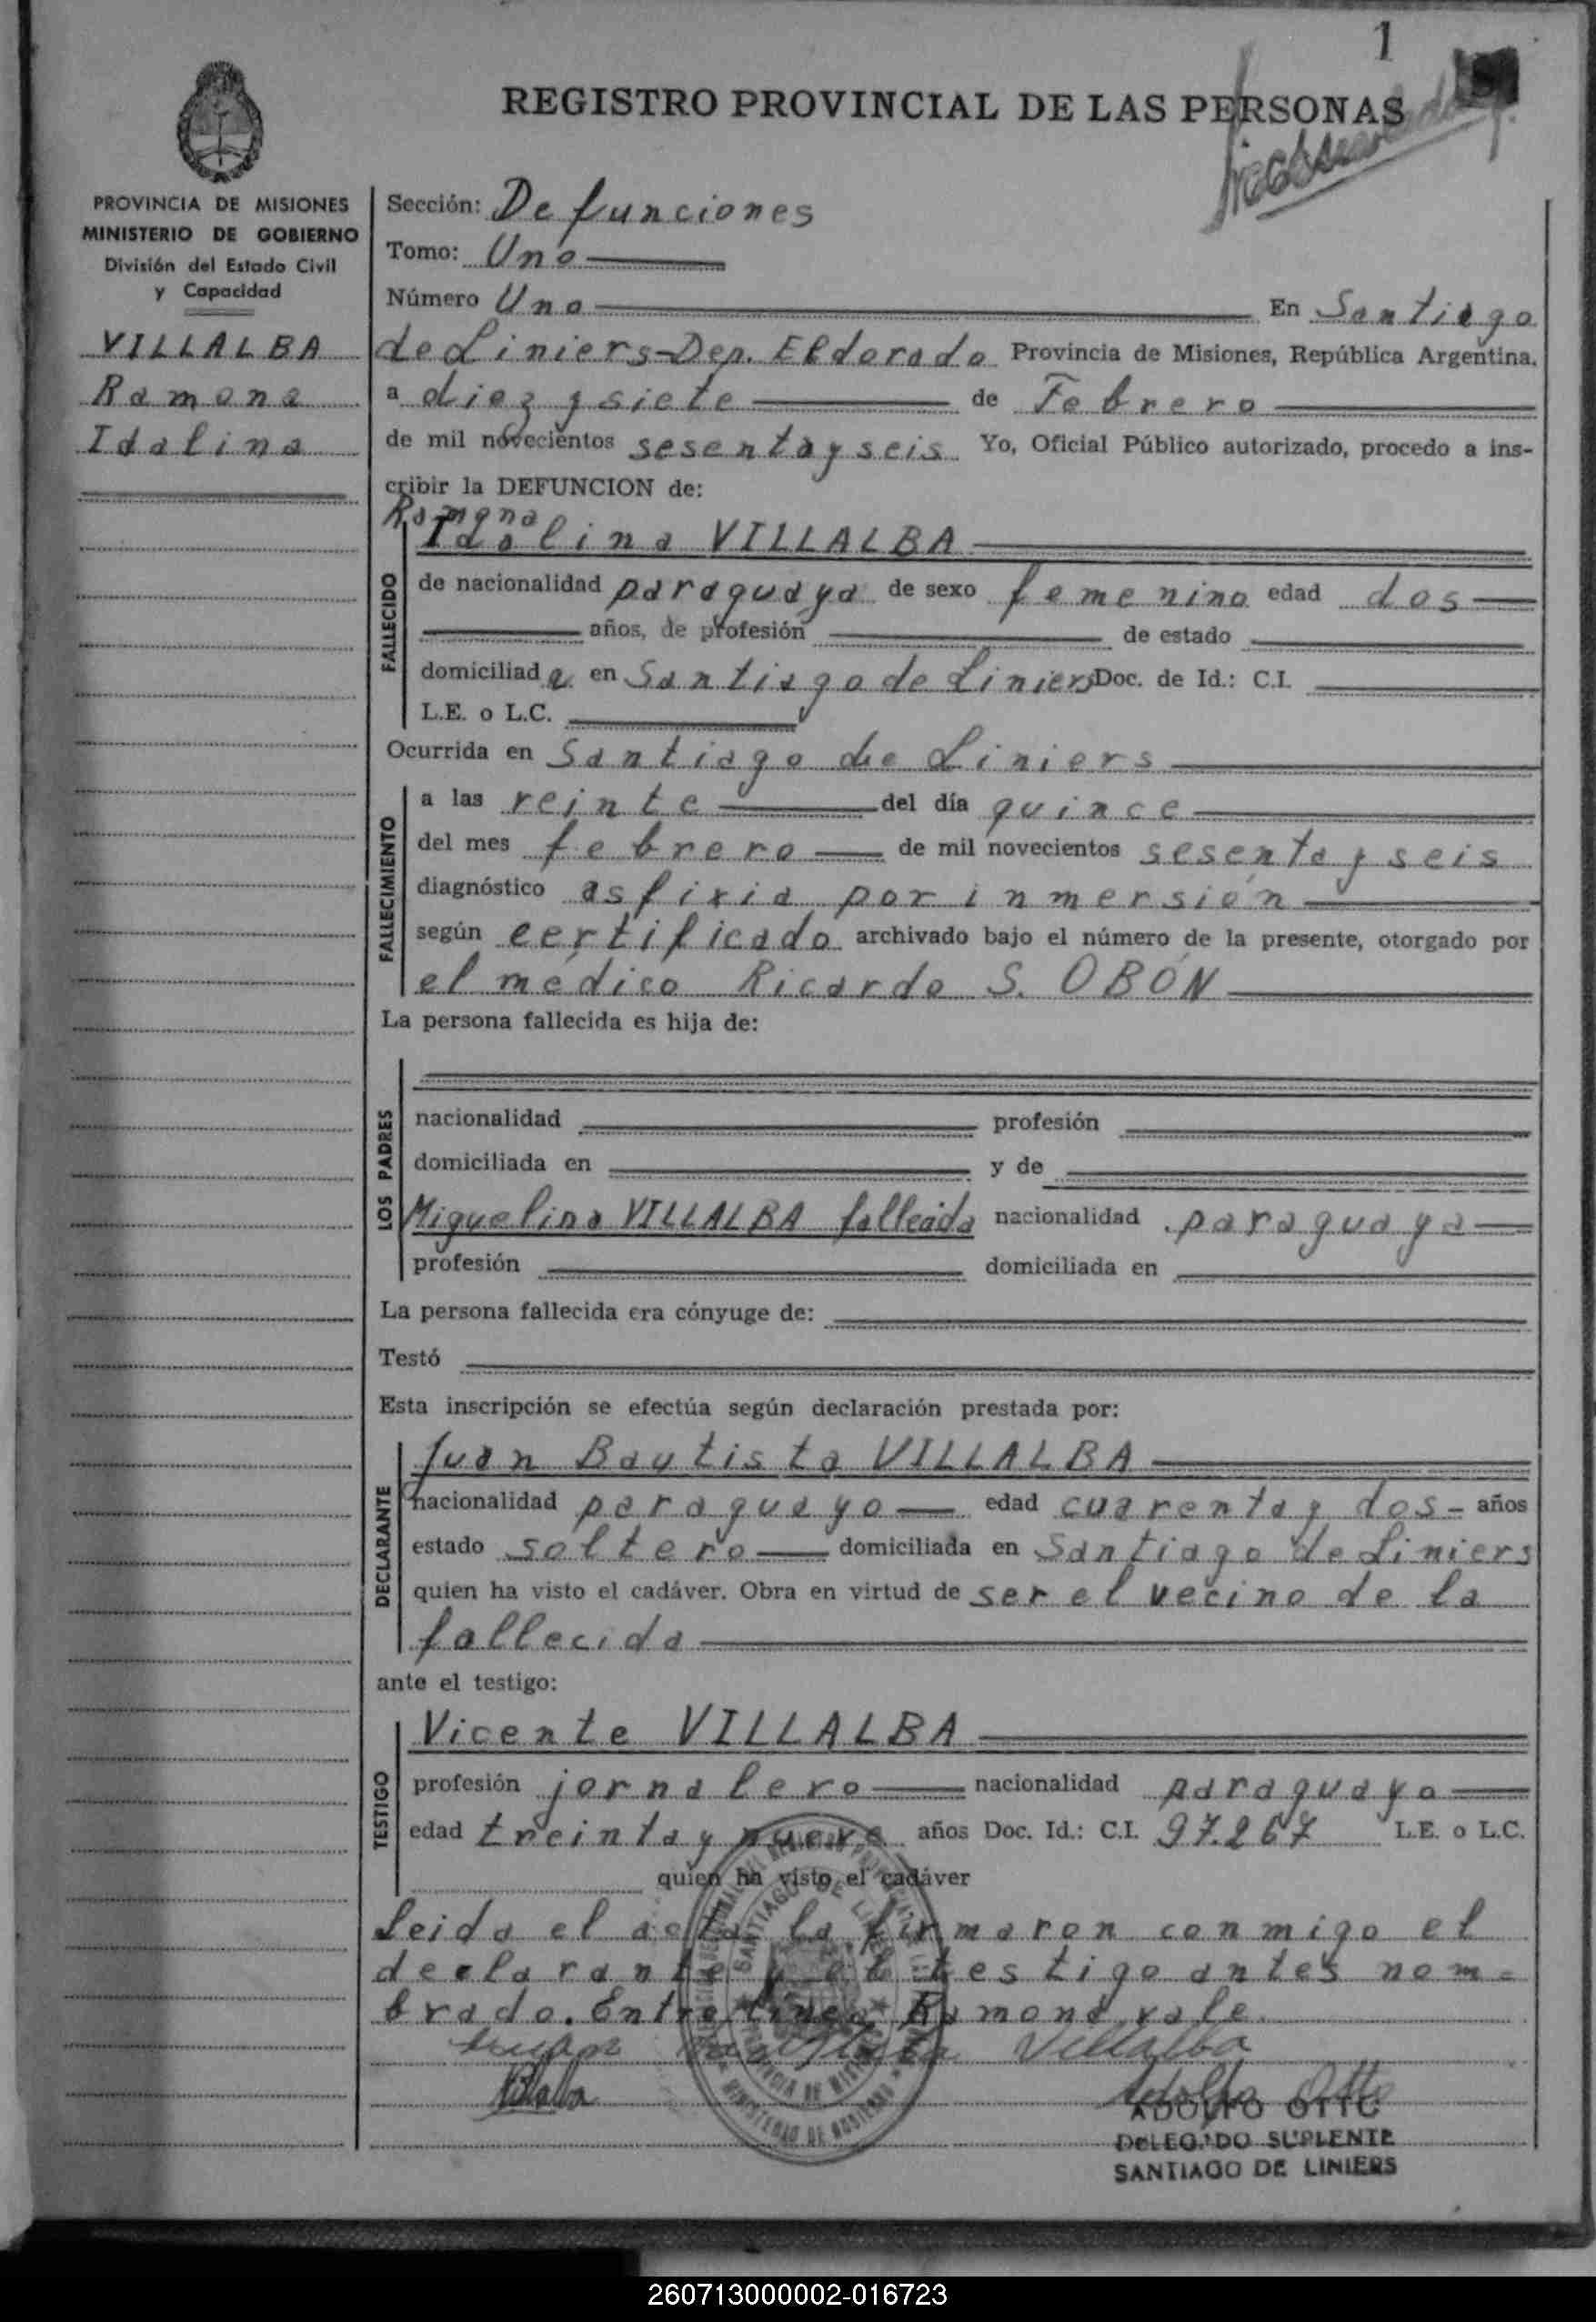 1
REGISTRO PROVINCIAL DE LAS PERSONAS
PROVINCIA DE MISIONES
MINISTERIO DE GOBIERNO
División del Estado Civil
y Capacidad
VILLALBA
Ramona
Idalina
Sección: Defunciones
Tomo: Uno
Número Uno En Santiago
de Liniers-Dep. Eldorado Provincia de Misiones, República Argentina,
a diez y siete de Febrero
de mil novecientos sesenta y seis Yo, Oficial Público autorizado, procedo a ins-
cribir la DEFUNCION de:
Ramona
Idalina VILLALBA
FALLECIDO
de nacionalidad paraguaya de sexo femenino edad dos
años, de profesión de estado
domiciliada en Santiago de Liniers Doc. de Id.: C.I.
L.E. o L.C.
Ocurrida en Santiago de Liniers
FALLECIMIENTO
a las veinte del día quince
del mes febrero de mil novecientos sesenta y seis
diagnóstico asfixia por inmersión
según certificado archivado bajo el número de la presente, otorgado por
el médico Ricardo S. OBÓN
La persona fallecida es hija de:
LOS PADRES
nacionalidad profesión
domiciliada en y de
Miguelina VILLALBA fallecida nacionalidad paraguaya
profesión domiciliada en
La persona fallecida era cónyuge de:
Testó
Esta inscripción se efectúa según declaración prestada por:
DECLARANTE
Juan Bautista VILLALBA
nacionalidad paraguayo edad cuarenta y dos - años
estado soltero domiciliada en Santiago de Liniers
quien ha visto el cadáver. Obra en virtud de ser el vecino de la
fallecida
ante el testigo:
TESTIGO
Vicente VILLALBA
profesión jornalero nacionalidad paraguayo
edad treinta y nueve años Doc. Id.: C.I. 97.267 L.E. o L.C.
quien ha visto el cadáver
Leida el acta la firmaron conmigo el
declarante y el testigo antes nom-
brado. Entre linea Ramona vale.
Juan Bautista Villalba
Adolfo Otto
ADOLFO OTTO
DELEGADO SUPLENTE
SANTIAGO DE LINIERS
SANTIAGO DE LINIERS
PROVINCIA DE MISIONES
MINISTERIO DE GOBIERNO
260713000002-016723